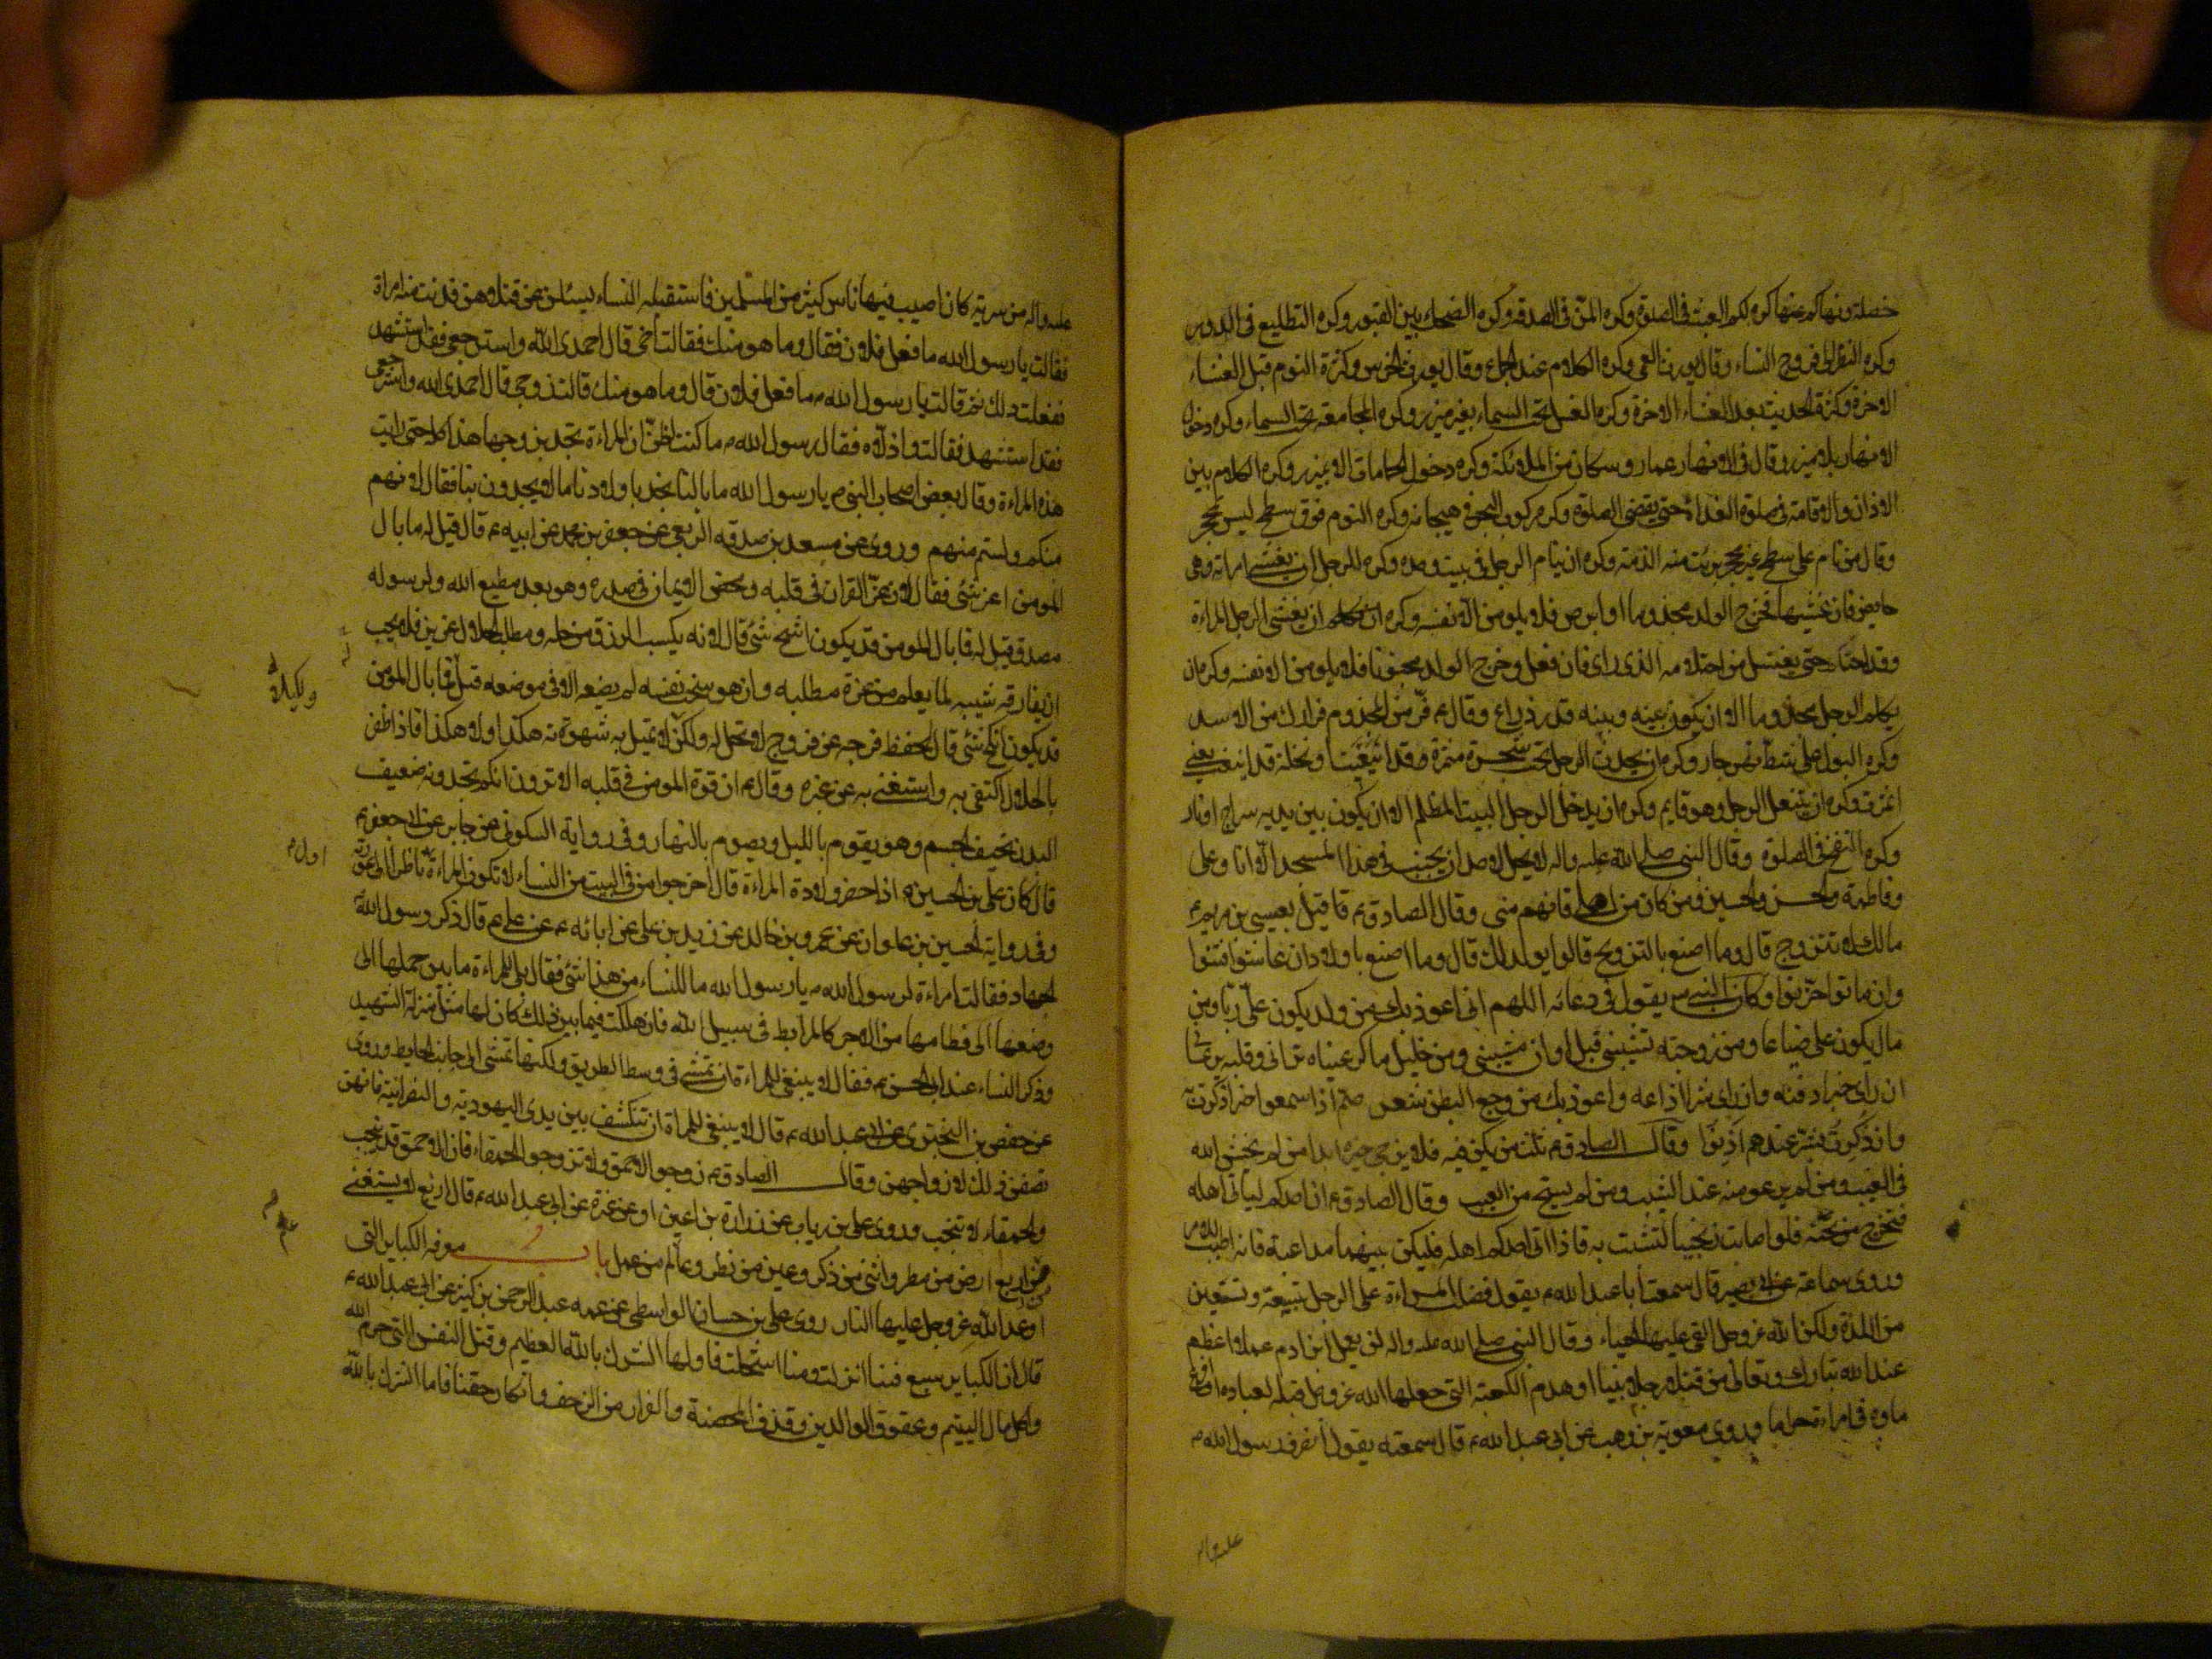 خصلة ونهاكم عنها كره لكم العبث فى الصلوة وكره المن فى الصدقة وكره الضحك بين القبور وكره التطليع فى الدور
وكره النظر الى فروج النساء وقال يورث العمى وكره الكلام عند الجماع وقال يورث الخرس وكثرة النوم قبل العشاء
الاخرة وكثرة الحديث بعد العشاء الاخرة وكره الغسل تحت السماء بغير ميزر وكره المجامعة تحت السماء وكره دخول
الانهار بلا ميزر وقال فى الانهار عمار وسكان من الملائكة وكره دخول الحمامات الا بميزر وكره الكلام بين
الاذان والاقامة فى صلوة الغداة حتى يقضى الصلوة وكره ركوب البحر فى هيجانه وكره النوم فوق سطح ليس بمحجر
وقال من نام على سطح غير محجر برئت منه الذمة وكره ان ينام الرجل فى بيت وحده وكره للرجل ان يغشى امراته وهى
حايض فان غشيها فخرج الولد مجذوما او ابرص فلا يلومن الا نفسه وكره ان يغشى الرجل المراءة
وقد احتلم حتى يغتسل من احتلامه الذى راى فان فعل وخرج الولد مجنونا فلا يلومن الا نفسه وكره ان
يكلم الرجل مجذوما الا ان يكون بينه وبينه قدر ذراع وقال ع فر من المجذوم فرارك من الاسد
وكره البول على شط نهر جار وكره ان يحدث الرجل تحت شجرة مثمرة قد اينعت او نخلة قد اينعت يعنى
اثمرت وكره ان يتنعل الرجل وهو قايم وكره ان يدخل الرجل البيت المظلم الا ان يكون بين يديه سراج او نار
وكره النفخ فى الصلوة وقال النبى صلى الله عليه واله لا يحل لاحد ان يجنب فى هذا المسجد الا انا وعلى
وفاطمة والحسن والحسين ومن كان من اهلى فانهم منى وقال الصادق ع قيل لعيسى بن مريم
مالك لا تتزوج قال وما اصنع بالتزويج قالوا يولد لك قال وما اصنع باولاد ان عاشوا فتنوا
وان ماتوا حزنوا وكان النبى يقول فى دعائه اللهم انى اعوذ بك من ولد يكون على ربا ومن
مال يكون على ضياعا ومن زوجة تشيبنى قبل اوان مشيبى ومن خليل ماكر عيناه ترانى وقلبه يرعانى
ان راى خيرا دفنه وان راى شرا اذاعه واعوذ بك من وجع البطن شعر صم اذا سمعوا خيرا ذكرت به
وان ذكرت بشر عندهم اذنوا وقال الصادق ع ثلث من يكن فيه فلا يرجى خيره ابدا من لم يخش الله
فى الغيب ومن لم يرعو منه عند الشيب ومن لم يستح من العيب وقال الصادق ع ان احدكم لياتى اهله
فتخرج من تحته فلو اصابت زنجيا لتشبثت به فاذا اتى احدكم اهله فليكن بينهما مداعبة فانه اطيب للامر
وروى سماعة عن ابى بصير قال سمعت ابا عبد الله ع يقول فضلت المراءة على الرجل بتسعة وتسعين
من اللذة ولكن الله عز وجل القى عليها الحياء وقال النبى صلى الله عليه واله لن يعمل ابن ادم عملا اعظم
عند الله تبارك وتعالى من رجل قتل نبيا او هدم الكعبة التى جعلها الله عز وجل قبلة لعباده او افرغ
ماءه فى امراءة حراما وروى معوية بن وهب عن ابى عبد الله ع قال سمعته يقول انصرف رسول الله
عليه واله
عليه واله من سرية كان اصيب فيها ناس كثير من المسلمين فاستقبله النساء يسئلن عن قتلاهن فدنت منه امراة
فقالت يا رسول الله ما فعل فلان فقال وما هو منك فقالت اخى قال احمدى الله واسترجعى فقد استشهد
ففعلت ذلك ثم قالت يا رسول الله ما فعل فلان قال وما هو منك قالت زوجى قال احمدى الله واسترجعى
فقد استشهد فقالت واذلاه فقال رسول الله ما كنت اظن ان المراءة تجد بزوجها هذا كله حتى رايت
هذه المراءة وقال بعض اصحاب النبى يا رسول الله ما بالنا نجد باولادنا ما لا يجدون بنا فقال لانهم
منكم ولستم منهم وروى عن مسعدة بن صدقه الربعى عن جعفر بن محمد عن ابيه ع قال قيل له ما بال
المومن اعز شئ فقال لان عز القران فى قلبه ومحض الايمان فى صدره وهو بعد مطيع الله ولرسوله
مصدق قيل له فما بال المومن قد يكون اشح شئ قال لانه يكسب الرزق من حله ومطلب الحلال عزيز فلا يحب
ان يفارقه شيبه لما يعلم من عزة مطلبه وان هو سخت نفسه لم يضعه الا فى موضعه قيل فما بال المومن
قد يكون انكح شئ قال لحفظ فرجه عن فروج لا تحل له ولكن لا تميل به شهوته هكذا ولا هكذا فاذا ظفر
بالحلال اكتفى به واستغنى به عن غيره وقال ع ان قوة المومن فى قلبه الا ترون انكم تجدونه ضعيف
البدن نحيف الجسم وهو يقوم بالليل ويصوم بالنهار وفى رواية السكونى عن جابر عن ابى جعفر ع
قال كان على بن الحسين ع اذا حضر ولادة المراءة قال اخرجوا من فى البيت من النساء لا تكون المراءة ناظر الى عورته
وفى رواية الحسين بن علوان عن عمرو بن خالد عن زيد بن على عن ابائه ع عن على ع قال ذكر رسول الله
الجهاد فقالت امراءة لرسول الله يا رسول الله ما للنساء من هذا شئ فقال بلى للمراءة ما بين حملها الى
وضعها الى فطامها من الاجر كالمرابط فى سبيل الله فان هلكت فيما بين ذلك كان لها مثل منزلة الشهيد
وذكر النساء عند ابى الحسن ع فقال لا ينبغى للمراءة ان تمشى فى وسط الطريق ولكنها تمشى الى جانب الحايط وروى
عن حفص بن البخترى عن ابى عبد الله ع قال لا ينبغى للمراة ان تنكشف بين يدى اليهودية والنصرانية فانهن
تصفن ذلك لازواجهن وقال الصادق ع زوجوا الاحمق ولا تزوجوا الحمقاء فان الاحمق قد ينجب
والحمقاء لا تنجب وروى على بن رياب عن زرارة بن اعين او عن غيره عن ابى عبد الله ع قال اربع لا يستغنى
من اربع ارض من مطر وانثى من ذكر وعين من نظر وعالم من علم باب معرفة الكباير التى
اوعد الله عز وجل عليها النار روى على بن حسان الواسطى عن عمه عبد الرحمن بن كثير عن ابى عبد الله ع
قال ان الكباير سبع فينا انزلت ومنا استحلت فاولها الشرك بالله العظيم وقتل النفس التى حرم الله
واكل مال اليتيم وعقوق الوالدين وقذف المحصنة والفرار من الزحف وانكار حقنا فاما الشرك بالله